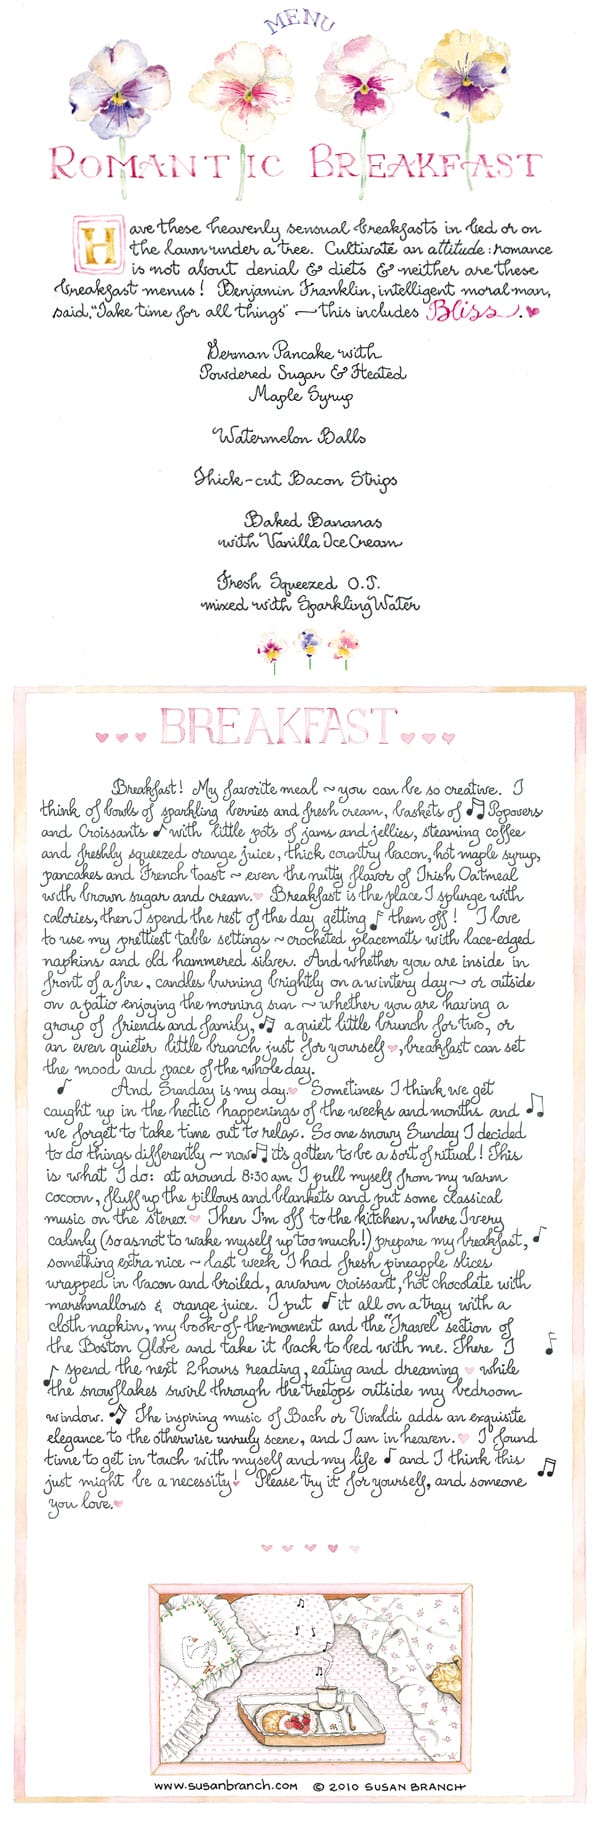 MENU
ROMANTIC BREAKFAST
Have these heavenly sensual breakfasts in bed or on
the lawn under a tree. Cultivate an attitude: romance
is not about denial & diets & neither are these
breakfast menus! Benjamin Franklin, intelligent moral man,
said, "Take time for all things" ~ this includes Bliss.
German Pancake with
Powdered Sugar & Heated
Maple Syrup
Watermelon Balls
Thick-cut Bacon Strips
Baked Bananas
with Vanilla Ice Cream
Fresh Squeezed O.J.
mixed with Sparkling Water
BREAKFAST
Breakfast! My favorite meal ~ you can be so creative. I
think of bowls of sparkling berries and fresh cream, baskets of Popovers
and Croissants with little pots of jams and jellies, steaming coffee
and freshly squeezed orange juice, thick country bacon, hot maple syrup,
pancakes and French toast ~ even the nutty flavor of Irish Oatmeal
with brown sugar and cream. Breakfast is the place I splurge with
calories, then I spend the rest of the day getting them off! I love
to use my prettiest table settings ~ crocheted placemats with lace-edged
napkins and old hammered silver. And whether you are inside in
front of a fire, candles burning brightly on a wintery day ~ or outside
on a patio enjoying the morning sun ~ whether you are having a
group of friends and family, a quiet little brunch for two, or
an even quieter little brunch just for yourself, breakfast can set
the mood and pace of the whole day.
And Sunday is my day. Sometimes I think we get
caught up in the hectic happenings of the weeks and months and
we forget to take time out to relax. So one snowy Sunday I decided
to do things differently ~ now it's gotten to be a sort of ritual! This
is what I do: at around 8:30 am I pull myself from my warm
cocoon, fluff up the pillows and blankets and put some classical
music on the stereo. Then I'm off to the kitchen, where I very
calmly (so as not to wake myself up too much!) prepare my breakfast,
something extra nice ~ last week I had fresh pineapple slices
wrapped in bacon and broiled, a warm croissant, hot chocolate with
marshmallows & orange juice. I put it all on a tray with a
cloth napkin, my book-of-the-moment and the "Travel" section of
the Boston Globe and take it back to bed with me. There I
spend the next 2 hours reading, eating and dreaming while
the snowflakes swirl through the treetops outside my bedroom
window. The inspiring music of Bach or Vivaldi adds an exquisite
elegance to the otherwise unruly scene, and I am in heaven. I found
time to get in touch with myself and my life and I think this
just might be a necessity! Please try it for yourself, and someone
you love.
www.susanbranch.com © 2010 SUSAN BRANCH